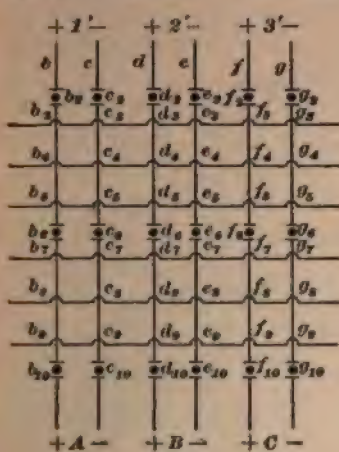 + 1' − + 2' − + 3' −
b c d e f g
b₂ c₂ d₂ e₂ f₂ g₂
b₃ c₃ d₃ e₃ f₃ g₃
b₄ c₄ d₄ e₄ f₄ g₄
b₅ c₅ d₅ e₅ f₅ g₅
b₆ c₆ d₆ e₆ f₆ g₆
b₇ c₇ d₇ e₇ f₇ g₇
b₈ c₈ d₈ e₈ f₈ g₈
b₉ c₉ d₉ e₉ f₉ g₉
b₁₀ c₁₀ d₁₀ e₁₀ f₁₀ g₁₀
+ A − + B − + C −